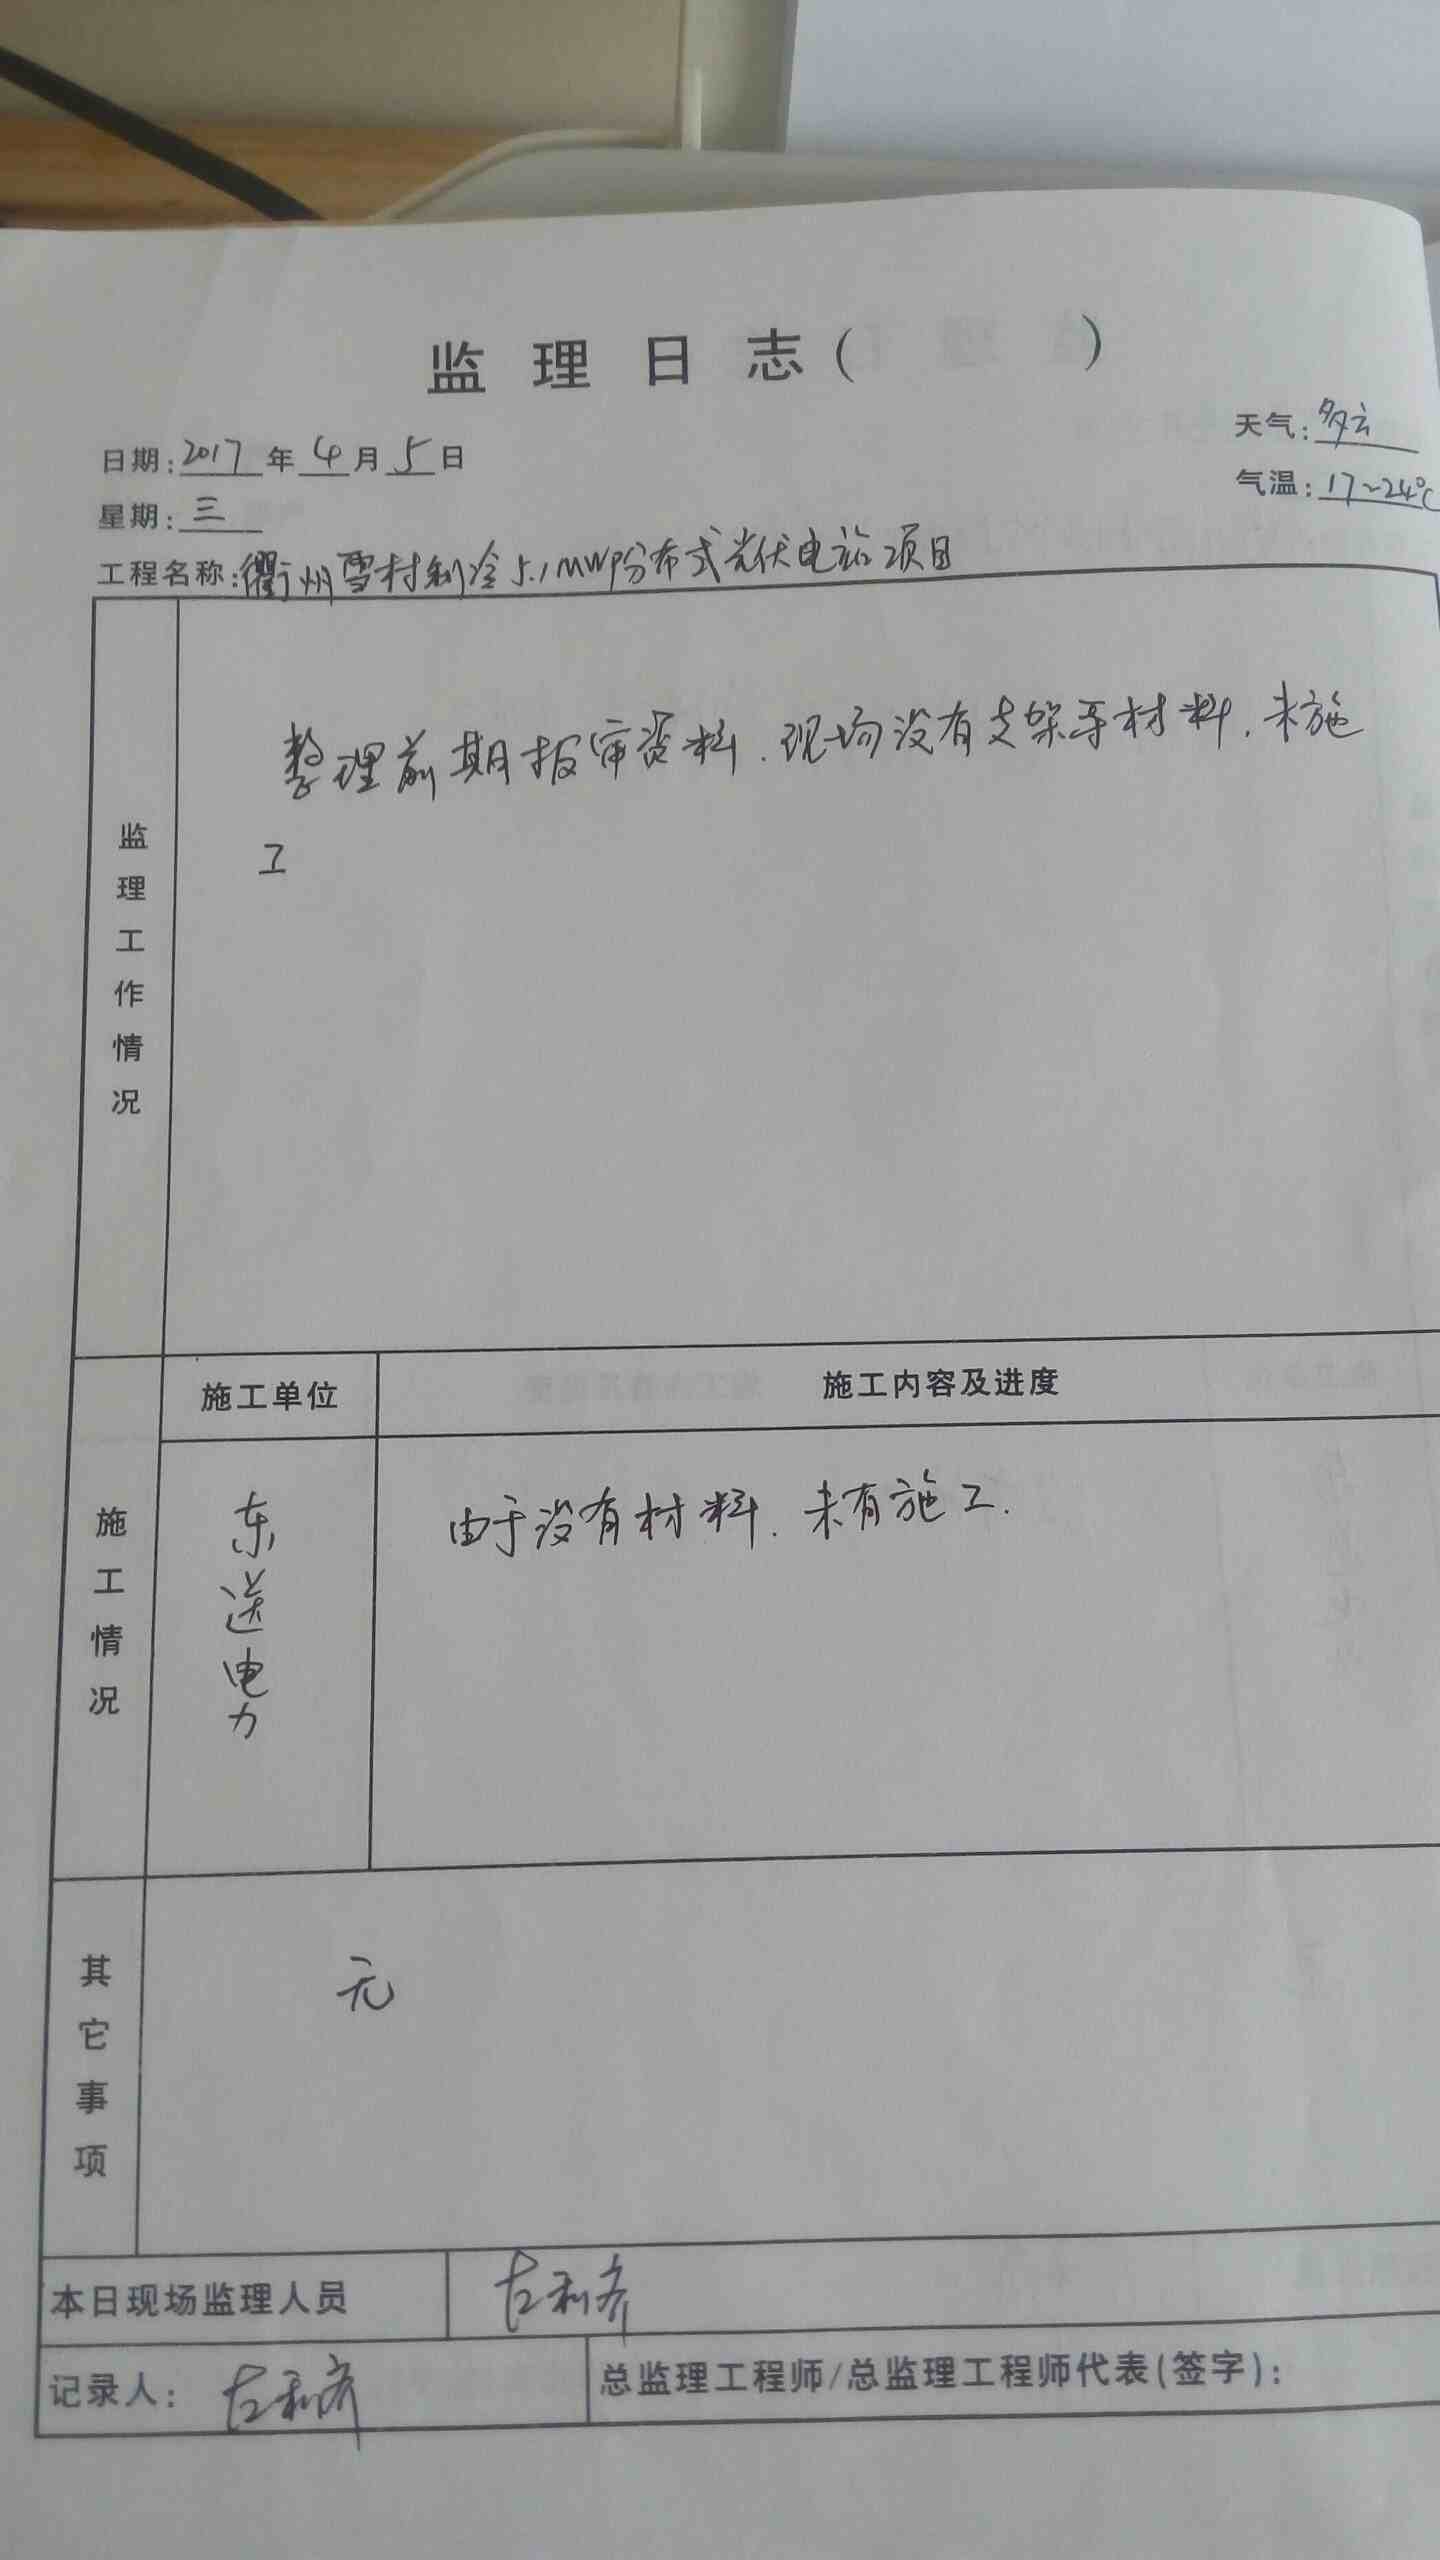 监理日志( )
天气:多云
日期:2017年4月5日
气温:17~24℃
星期:三
工程名称:衢州雪村制冷5.1MWP分布式光伏电站项目
监理工作情况
整理前期报审资料.现场没有支架等材料.未施
工
施工单位
施工内容及进度
施工情况
东送电力
由于没有材料.未有施工.
其它事项
无
本日现场监理人员
记录人:
总监理工程师/总监理工程师代表(签字):